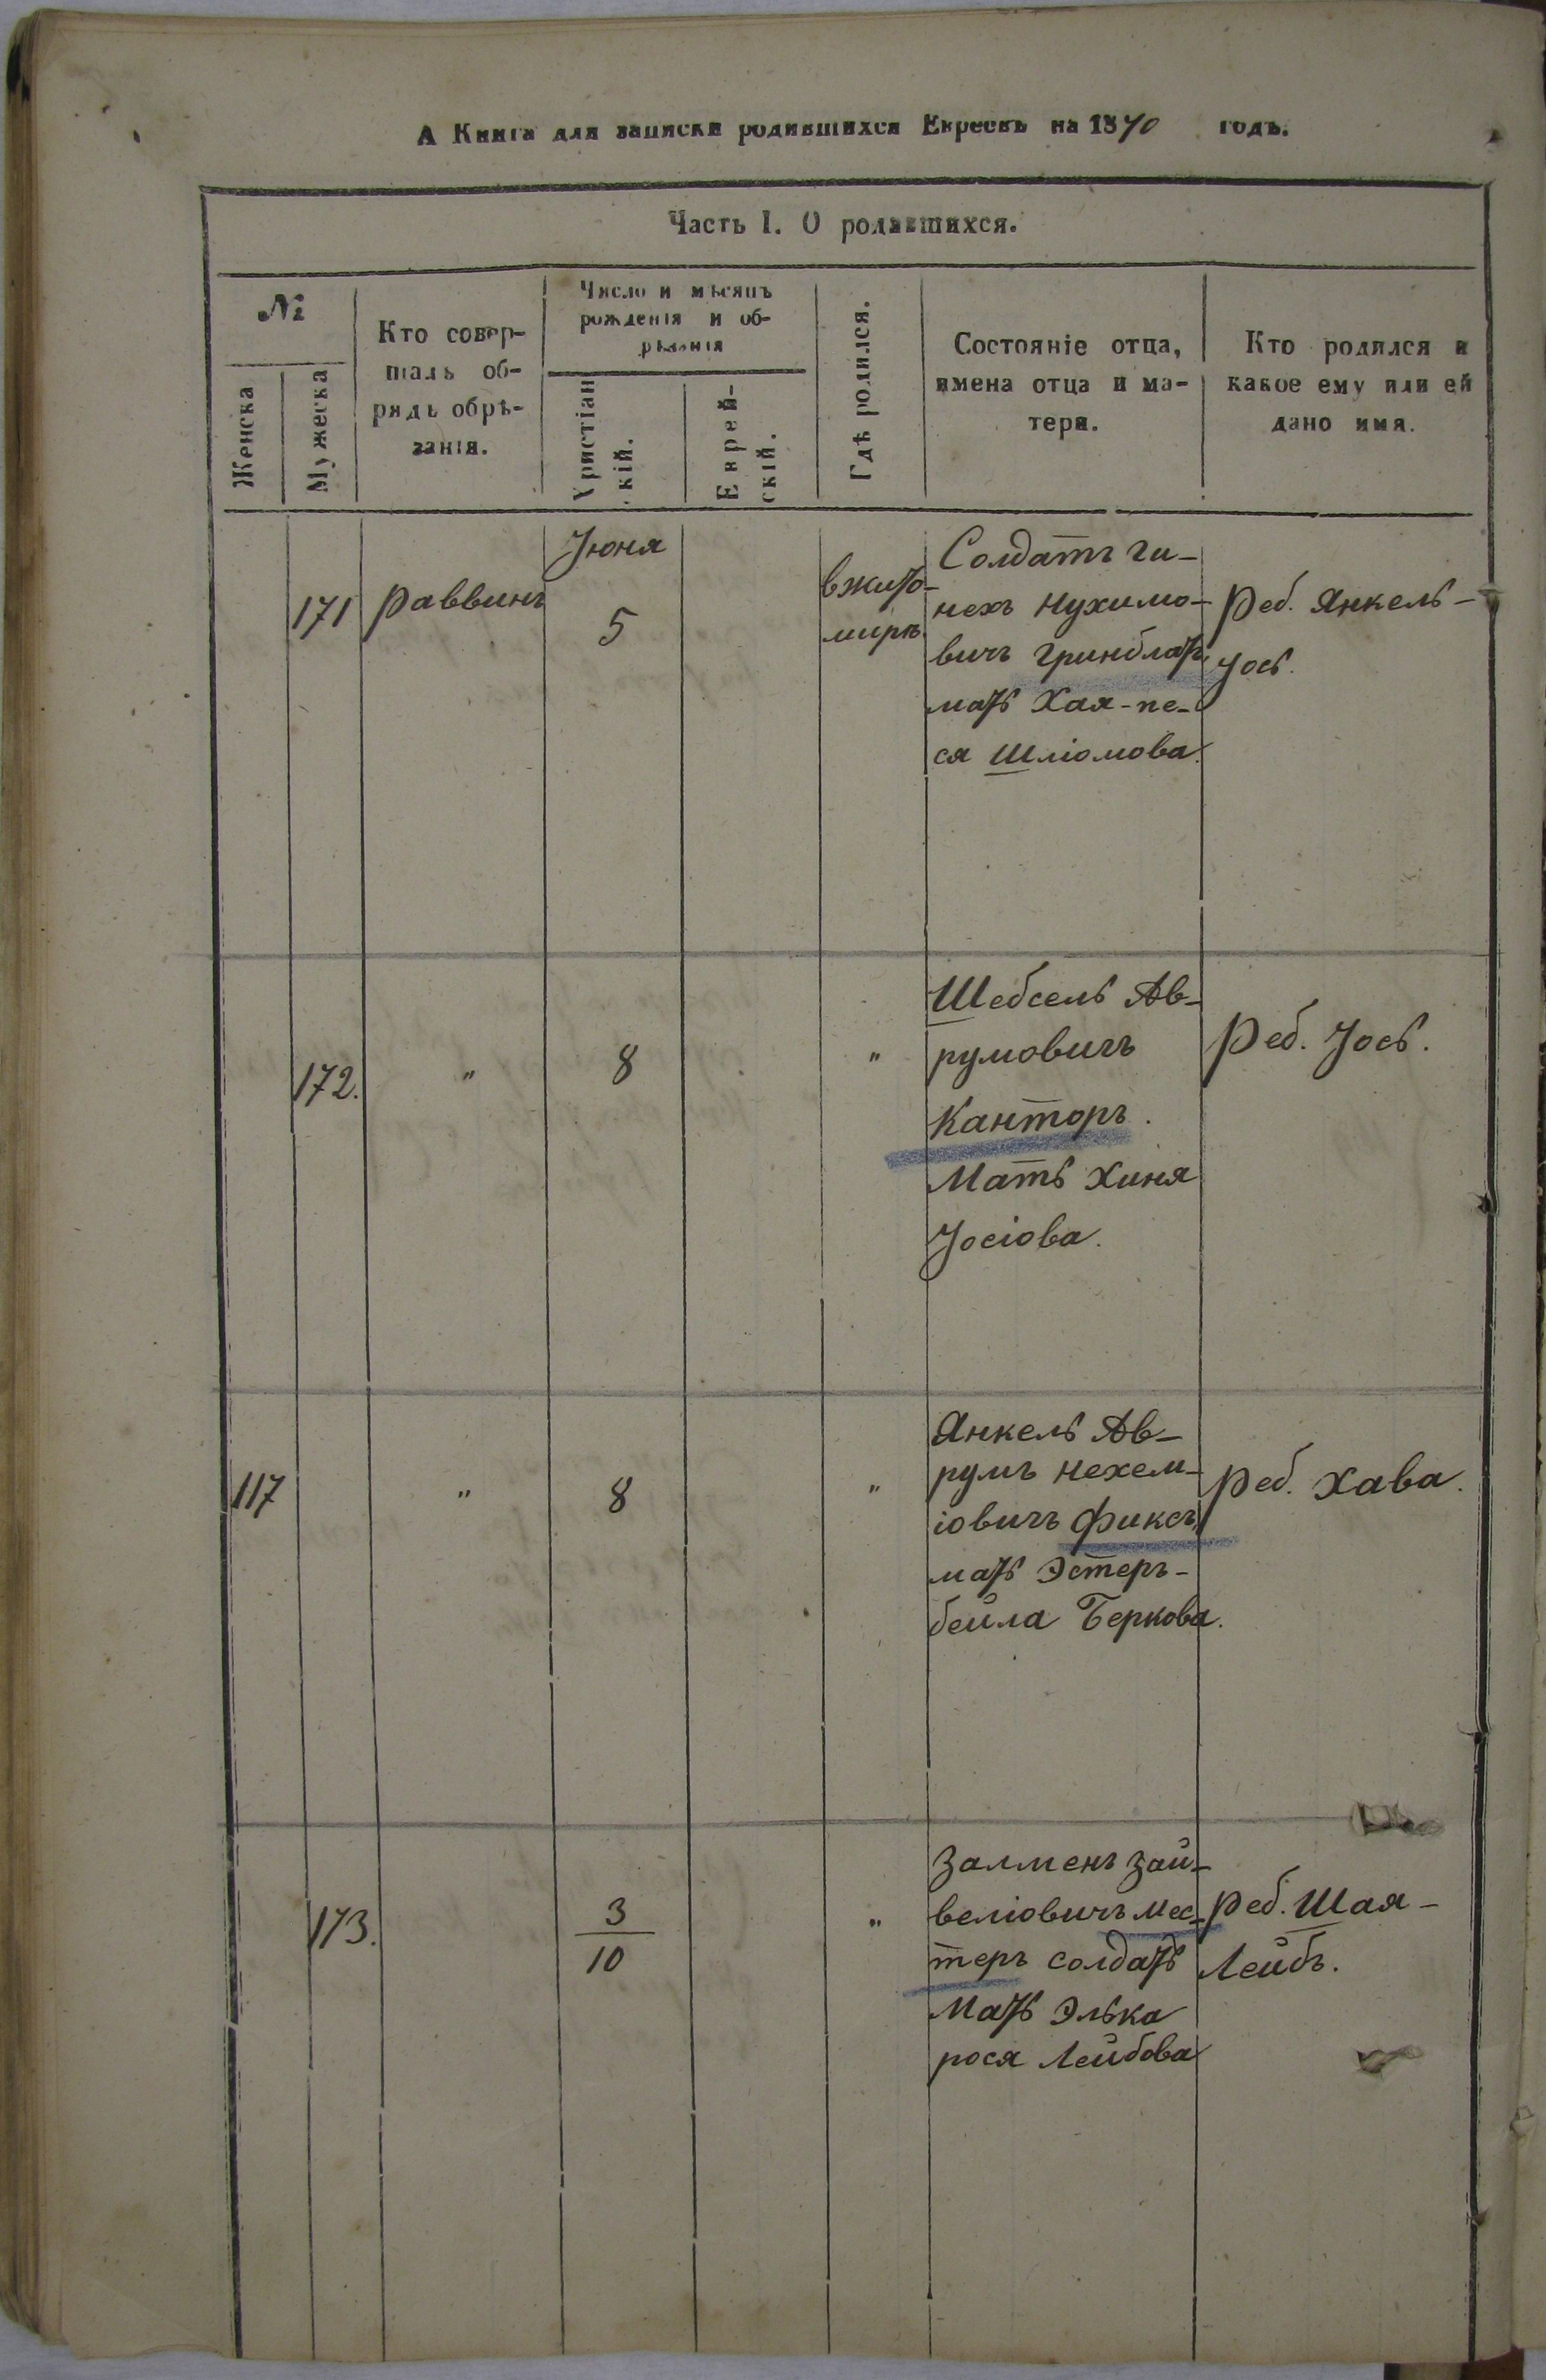 А Книга для записки родившихся Евреевъ на 1870 годъ.
Часть I. О родившихся.
№
Женска
Мужеска
Кто совер-
шалъ об-
рядъ обрѣ-
занія.
Число и мѣсяцъ
рожденія и об-
рѣзанія
Христіан
скій.
Еврей-
скій.
Гдѣ родился.
Состояніе отца,
имена отца и ма-
тери.
Кто родился и
какое ему или ей
дано имя.
171
Раввинъ
Іюня
5
вжито-
мирѣ.
Солдатъ ги-
нехъ Нухимо-
вичъ Гринблатъ,
мать Хая-пе-
ся Шліомова.
Реб. Янкель-
Іось.
172.
"
8
"
Шебсель Ав-
румовичъ
Канторъ.
Мать Хиня
Іосіова.
Реб. Іось.
117
"
8
"
Янкель Ав-
румъ Нехем-
іовичъ Фиксъ,
мать Эстеръ-
бейла Беркова.
Реб. Хава.
173.
3
10
"
Залменъ Зай-
веліовичъ Мес-
теръ солдатъ
Мать Элька
рося Лейбова
Реб. Шая-
Лейбъ.